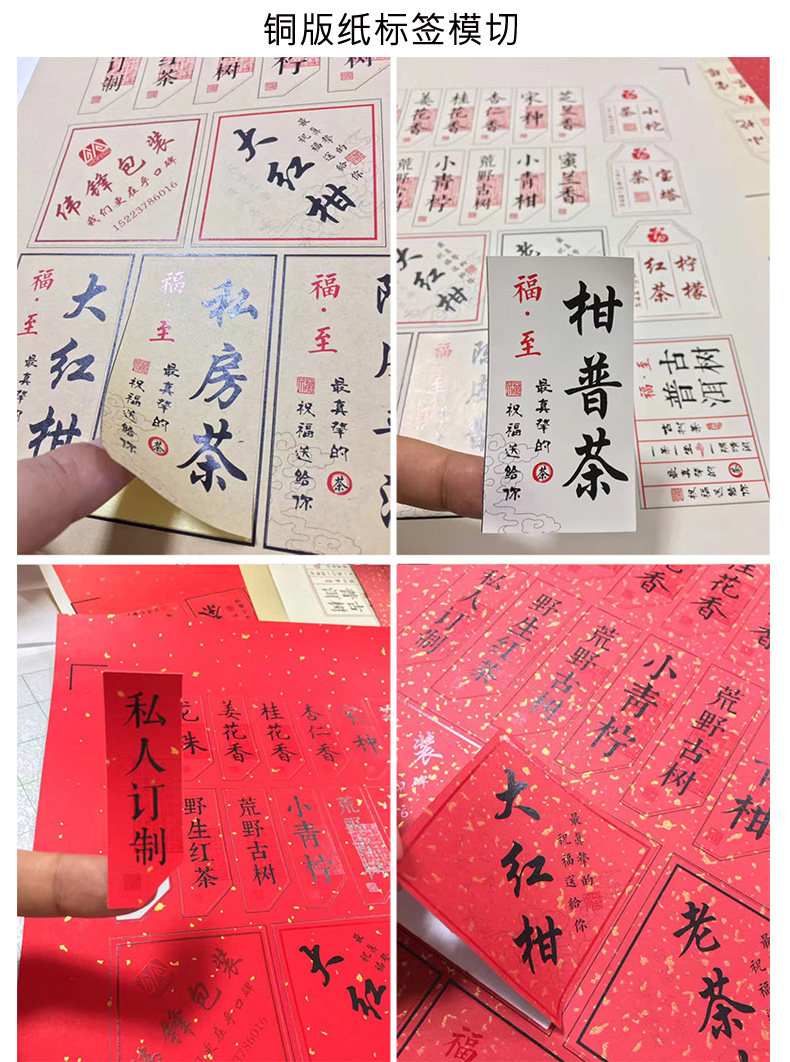 铜版纸标签模切
订制
红茶
树
柠
伟锋包装
我们更在乎口碑
15223786016
大红柑
最真挚的
祝福送给你
福·至
大红柑
最真
祝福送给你
福·至
私房茶
最真挚的
茶
祝福送给你
福·至
最真挚的
茶
祝福送给你
姜花香
桂花香
杏仁香
宋种
芝兰香
小沱
茶
荒野
小青柠
荒野古树
小青柑
蜜兰香
宝塔
茶
大红柑
福
柠檬
红茶
福·至
柑普茶
最真挚的
茶
祝福送给你
福·至
古树
普洱
最真挚的
祝福送给你
古树
普洱
茶
私人订制
姜花香
桂花香
杏仁香
宋种
野生红茶
荒野古树
小青柠
荒野
包装
我们更在乎口碑
15223786016
大红
最真
祝福
私人订制
野生红茶
荒野古树
小青柠
荒野古树
桂花香
花香
香
柑
装
碑
大红柑
最真挚的
祝福送给你
老茶
最真
祝福
福